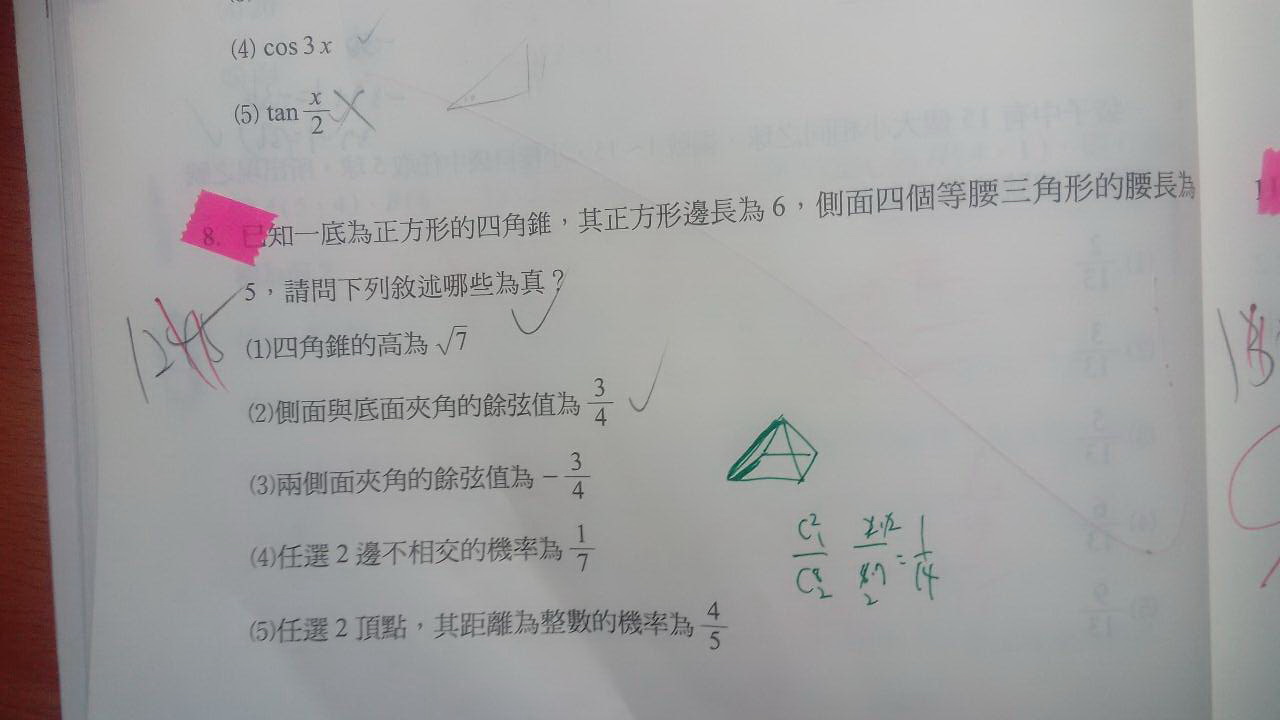 (4) cos 3x
(5) tan x/2
8. 已知一底為正方形的四角錐，其正方形邊長為 6，側面四個等腰三角形的腰長為
5，請問下列敘述哪些為真？
1245
(1)四角錐的高為 √7
(2)側面與底面夾角的餘弦值為 3/4
(3)兩側面夾角的餘弦值為 −3/4
(4)任選 2 邊不相交的機率為 1/7
(5)任選 2 頂點，其距離為整數的機率為 4/5